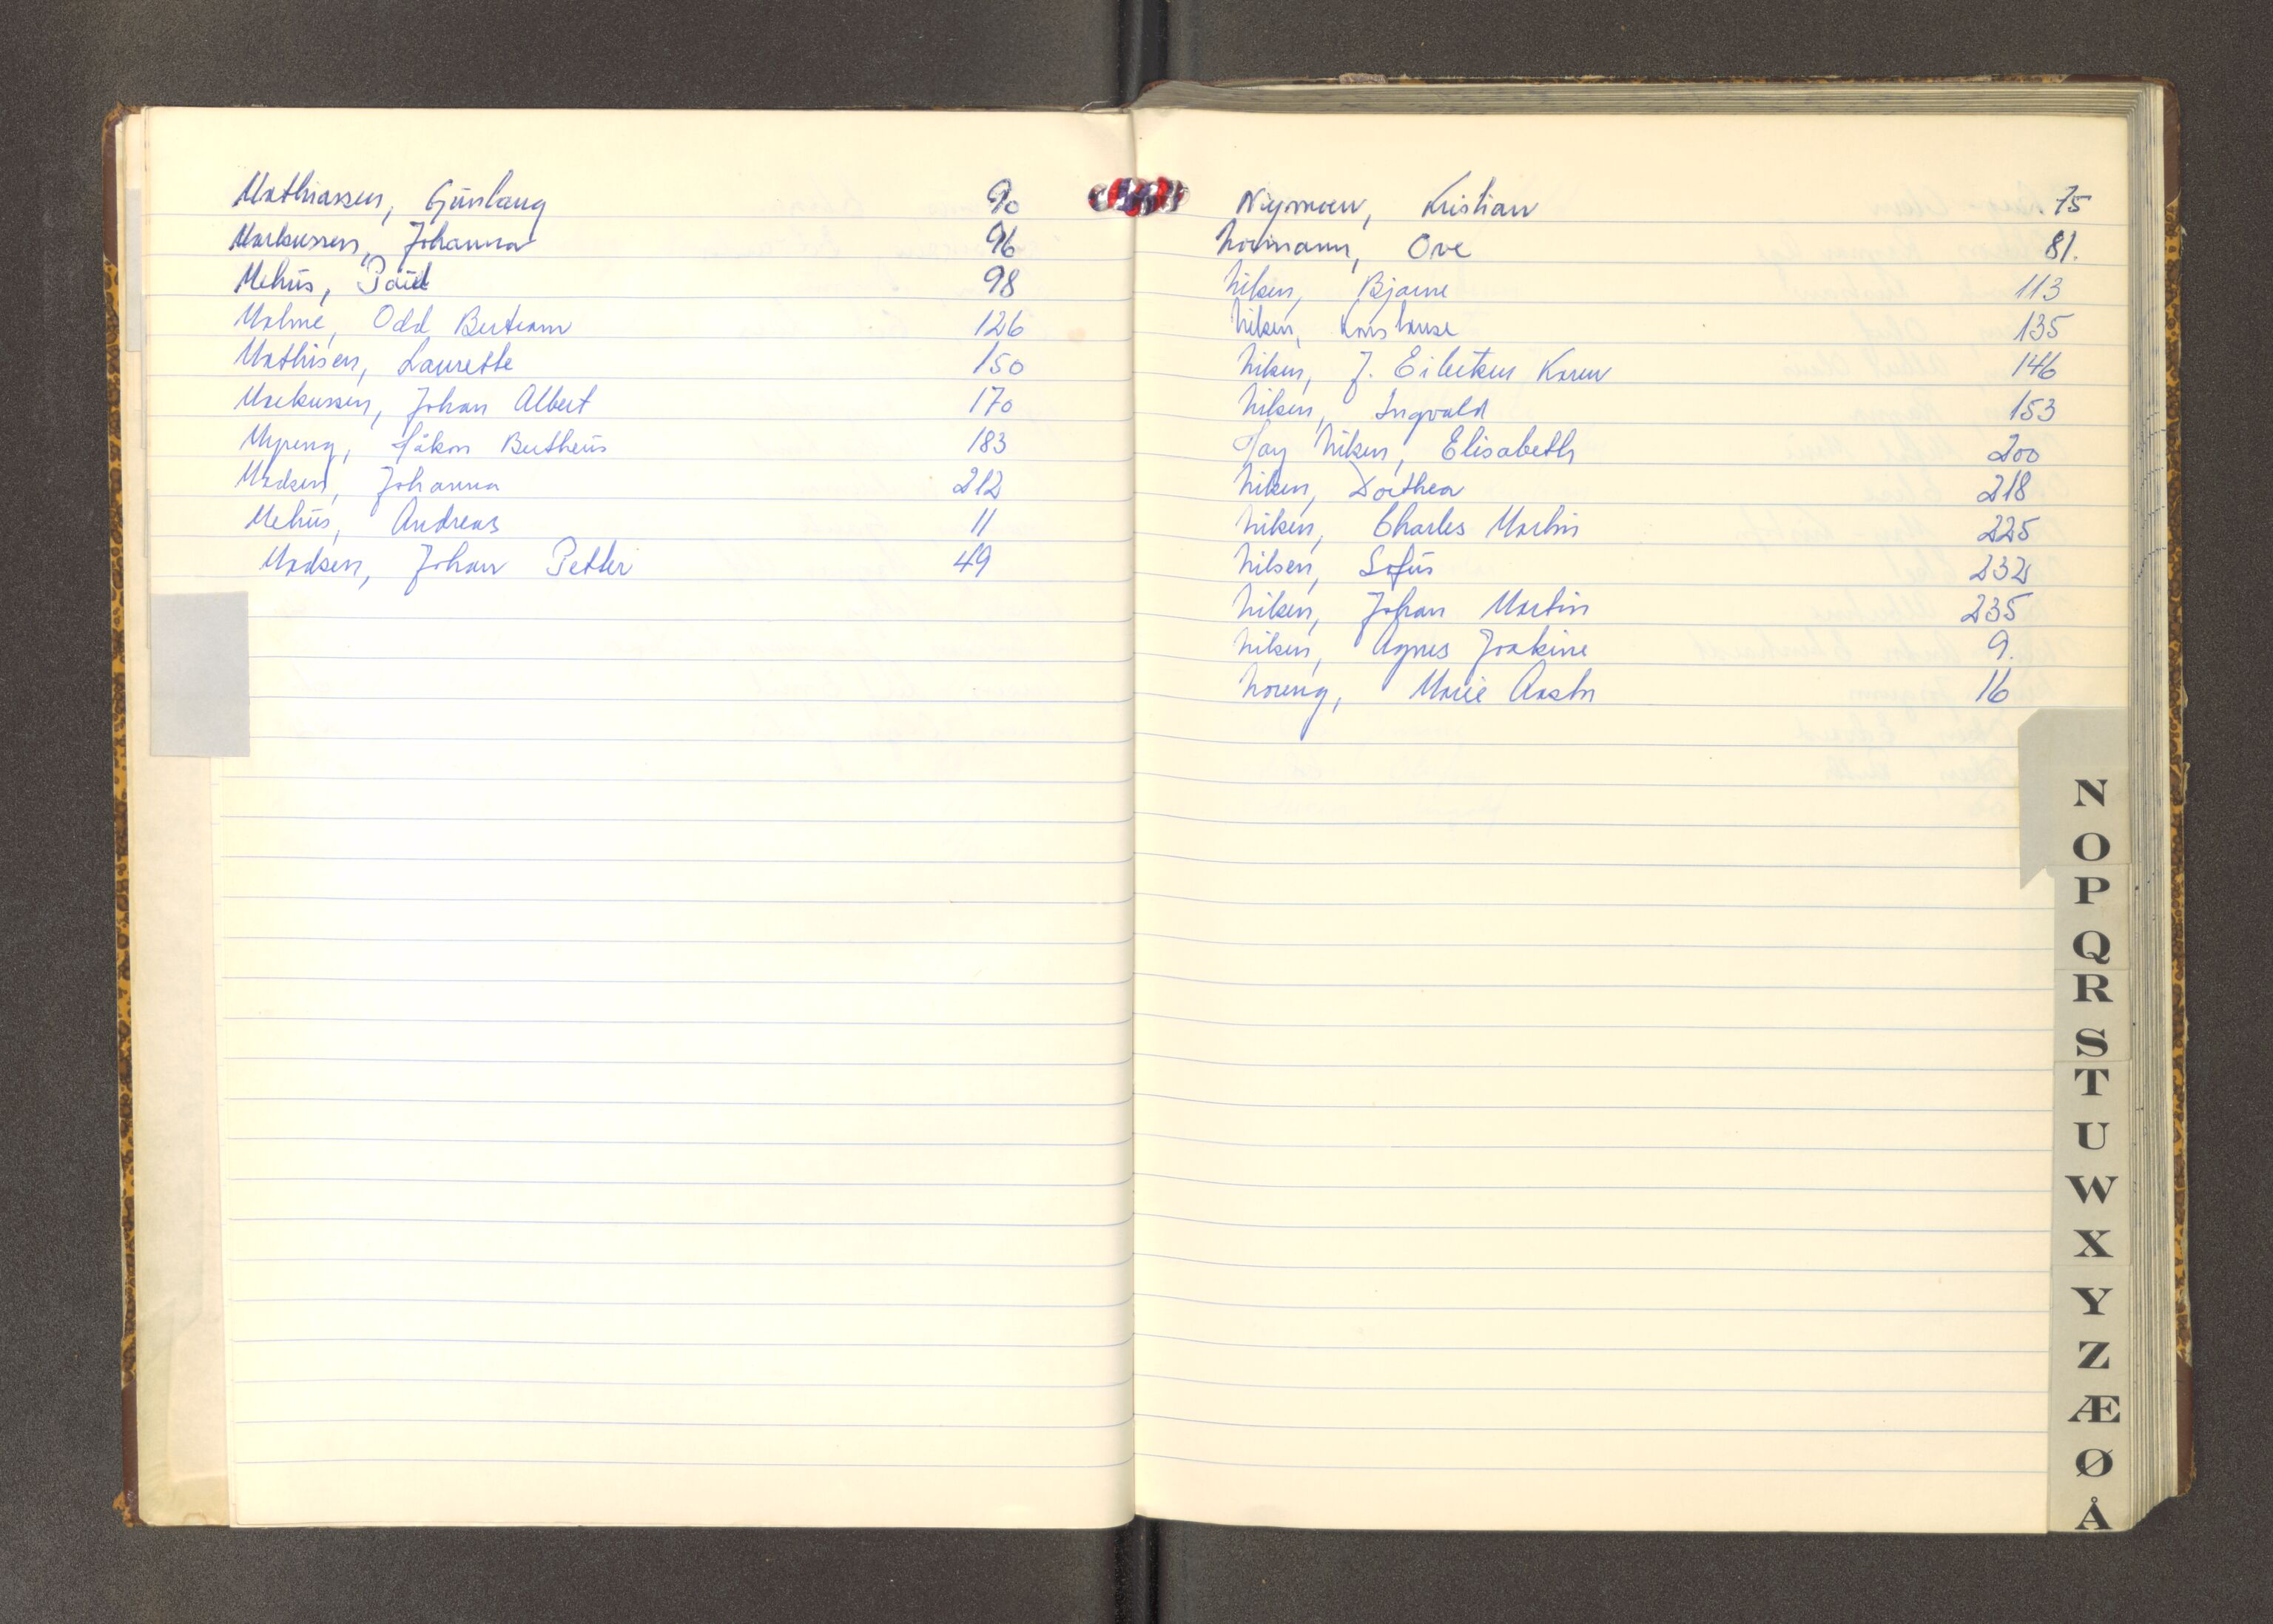 Mathiassen, Gunlaug 90
Markussen, Johanna 96
Mehus, Paul 98
Malme, Odd Bertram 126
Mathisen, Laurette 150
Markussen, Johan Albert 170
Myreng, Håkon Bertheus 183
Madsen, Johanna 212
Mehus, Andreas 11
Madsen, Johan Petter 49
Nymoen, Kristian 75
Normann, Ove 81.
Nilsen, Bjarne 113
Nilsen, Konstanse 135
Nilsen, J. Eilertsen Karen 146
Nilsen, Ingvald 153
Hay Nilsen, Elisabeth 200
Nilsen, Dorthea 218
Nilsen, Charles Martin 225
Nilsen, Sofus 232
Nilsen, Johan Martin 235
Nilsen, Agnes Joakine 9.
Noreng, Marie Aasta 16
N
O
P
Q
R
S
T
U
W
X
Y
Z
Æ
Ø
Å